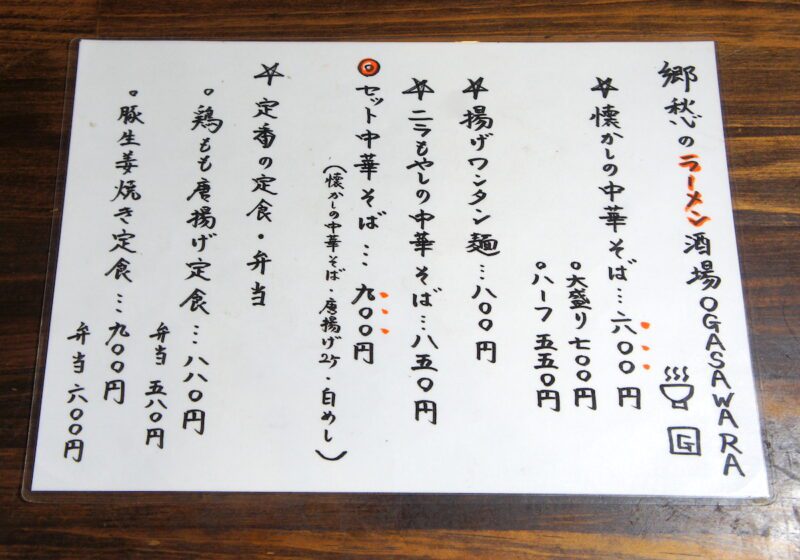 郷愁のラーメン酒場OGASAWARA
G
☆懐かしの中華そば…六〇〇円
○大盛り七〇〇円
○ハーフ五五〇円
☆揚げワンタン麺…八〇〇円
☆ニラもやしの中華そば…八五〇円
◎セット中華そば…九〇〇円
(懐かしの中華そば・唐揚げ2ケ・白めし)
☆定番の定食・弁当
○鶏もも唐揚げ定食…八八〇円
弁当 五八〇円
○豚生姜焼き定食…九〇〇円
弁当 六〇〇円